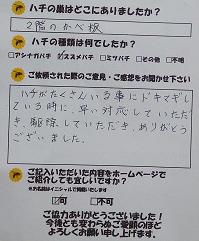 ハチの巣はどこにありましたか？
2階のかべ板
ハチの種類は何でしたか？
□アシナガバチ ☑スズメバチ □ミツバチ □その他 □不明
ご依頼された際のご意見・ご感想をお聞かせ下さい
ハチがたくさんいる事にドキマギし
ている時に、早い対応していただ
き、駆除していただき、ありがとう
ございました。
ご記入いただいた内容をホームページで
ご紹介しても宜しいですか？
※お名前はイニシャルで掲載いたします
☑可 □不可
ご協力ありがとうございました！
今後とも変わらぬご愛顧のほど
よろしくお願い申し上げます。